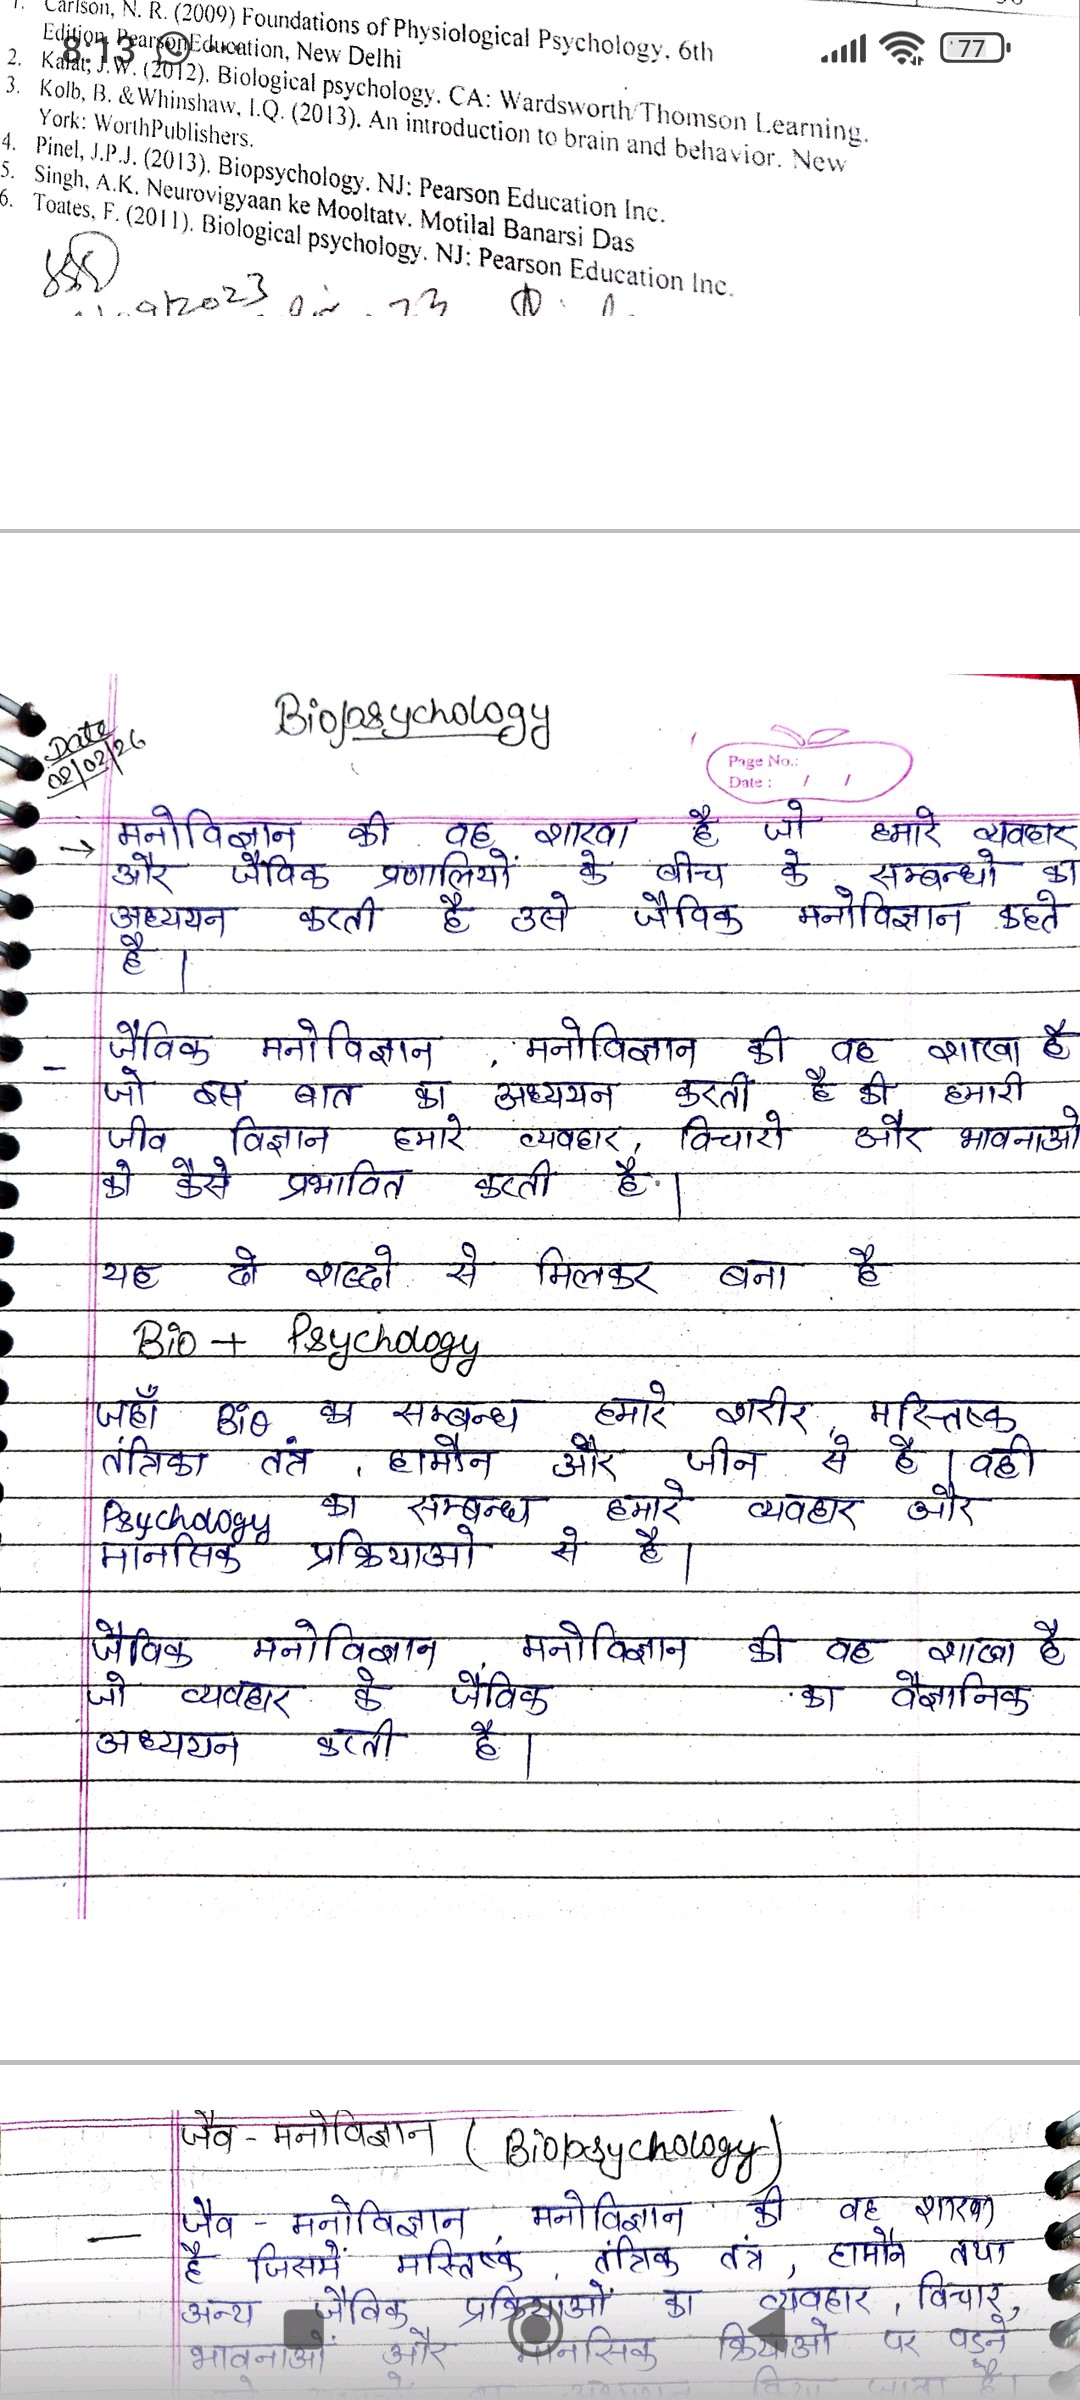 1. Carlson, N. R. (2009) Foundations of Physiological Psychology. 6th
Edition, PearsonEducation, New Delhi
8:13
77
2. Kalat, J.W. (2012). Biological psychology. CA: Wardsworth/Thomson Learning.
3. Kolb, B. &Whinshaw, I.Q. (2013). An introduction to brain and behavior. New
York: WorthPublishers.
4. Pinel, J.P.J. (2013). Biopsychology. NJ: Pearson Education Inc.
5. Singh, A.K. Neurovigyaan ke Mooltatv. Motilal Banarsi Das
6. Toates, F. (2011). Biological psychology. NJ: Pearson Education Inc.
Biopsychology
Date
02/02/26
Page No.:
Date : / /
→ मनोविज्ञान की वह शाखा है जो हमारे व्यवहार
और जैविक प्रणालियों के बीच के सम्बन्धो का
अध्ययन करती है उसे जैविक मनोविज्ञान कहते
है |
- जैविक मनोविज्ञान , मनोविज्ञान की वह शाखा है
जो इस बात का अध्ययन करती है की हमारी
जीव विज्ञान हमारे व्यवहार, विचारो और भावनाओ
को कैसे प्रभावित करती है |
यह दो शब्दो से मिलकर बना है
Bio + Psychology
जहाँ Bio का सम्बन्ध हमारे शरीर, मस्तिष्क
तंत्रिका तंत्र , हार्मोन और जीन से है | वही
Psychology का सम्बन्ध हमारे व्यवहार और
मानसिक प्रक्रियाओ से है |
जैविक मनोविज्ञान , मनोविज्ञान की वह शाखा है
जो व्यवहार के जैविक का वैज्ञानिक
अध्ययन करती है |
जैव - मनोविज्ञान ( Biopsychology)
— जैव - मनोविज्ञान , मनोविज्ञान की वह शाखा
है जिसमें मस्तिष्क , तंत्रिक तंत्र , हार्मोन तथा
अन्य जैविक प्रक्रियाओं का व्यवहार , विचार,
भावनाओं और मानसिक क्रियाओ पर पडने